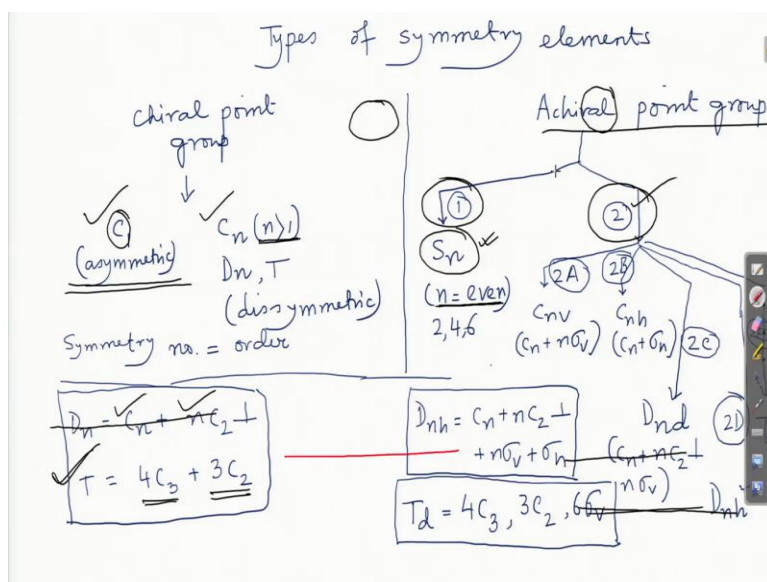 Types of symmetry elements
Chiral point
group
C₁
(asymmetric)
Cn (n>1)
Dn, T
(dissymmetric)
Symmetry no. = order
Dn = Cn + nC₂⊥
T = 4C₃ + 3C₂
Achiral point group
①
Sn
(n = even)
2,4,6
②
2A
Cnv
(Cn + nσv)
2B
Cnh
(Cn + σh)
2C
Dnd
(Cn + nC₂⊥
nσv)
2D
Dnh
Dnh = Cn + nC₂⊥
+ nσv + σh
Td = 4C₃, 3C₂, 6σv